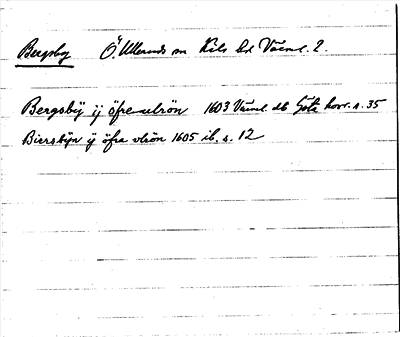 Bergsby Ö. Ulleruds sn Kils hd Värml. 2.
Bergsbÿ ÿ öfre ulrön 1603 Värml. db Göta hovr. s. 35
Biersbÿn ÿ öfra vlrön 1605 ib. s. 12